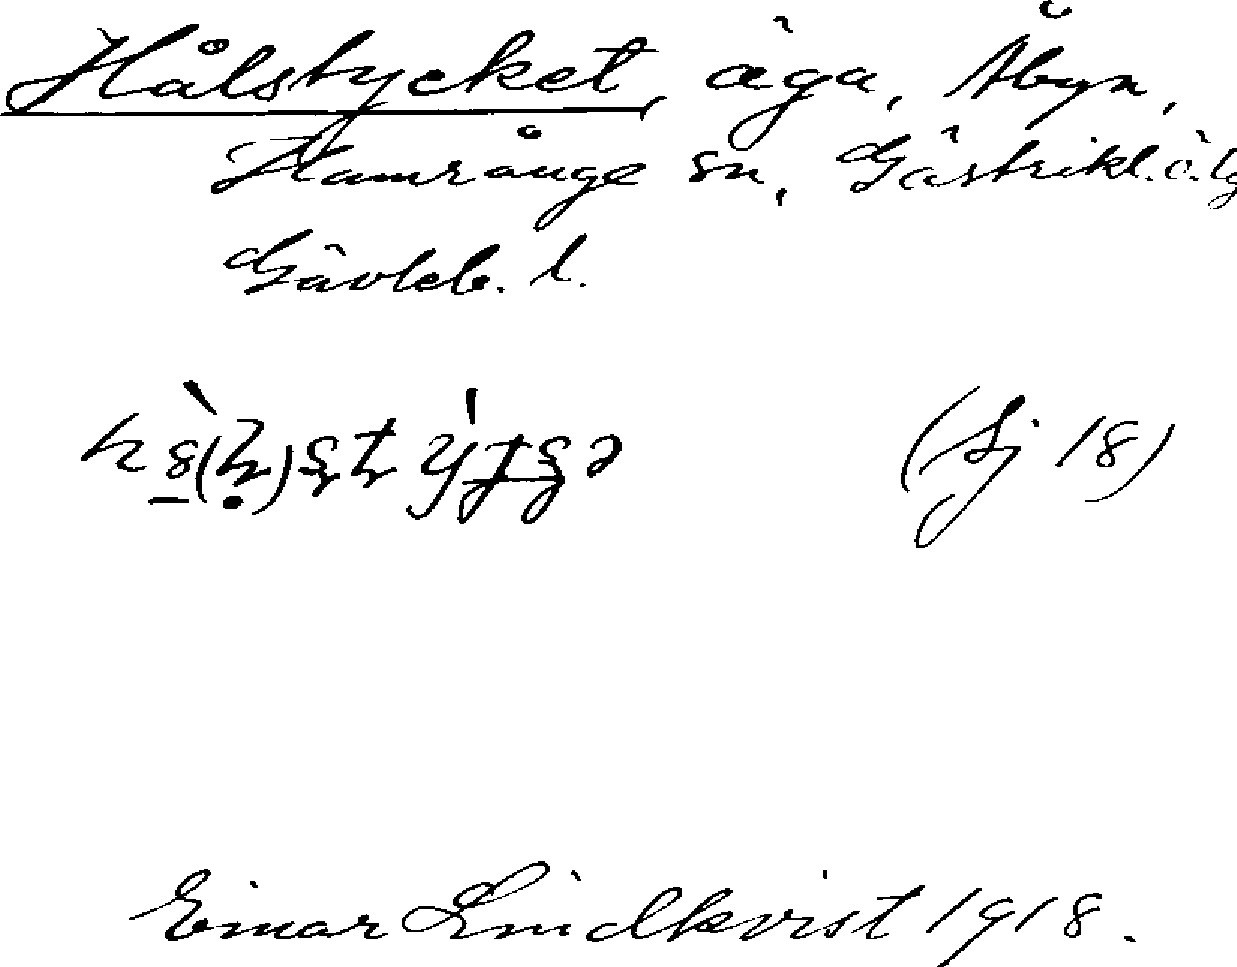 Hålstycket, äga, Åbyn,
Hamrånge sn, Gästrikl. ö. tg
Gävleb. l.
(Sj 18)
Einar Lindkvist 1918.